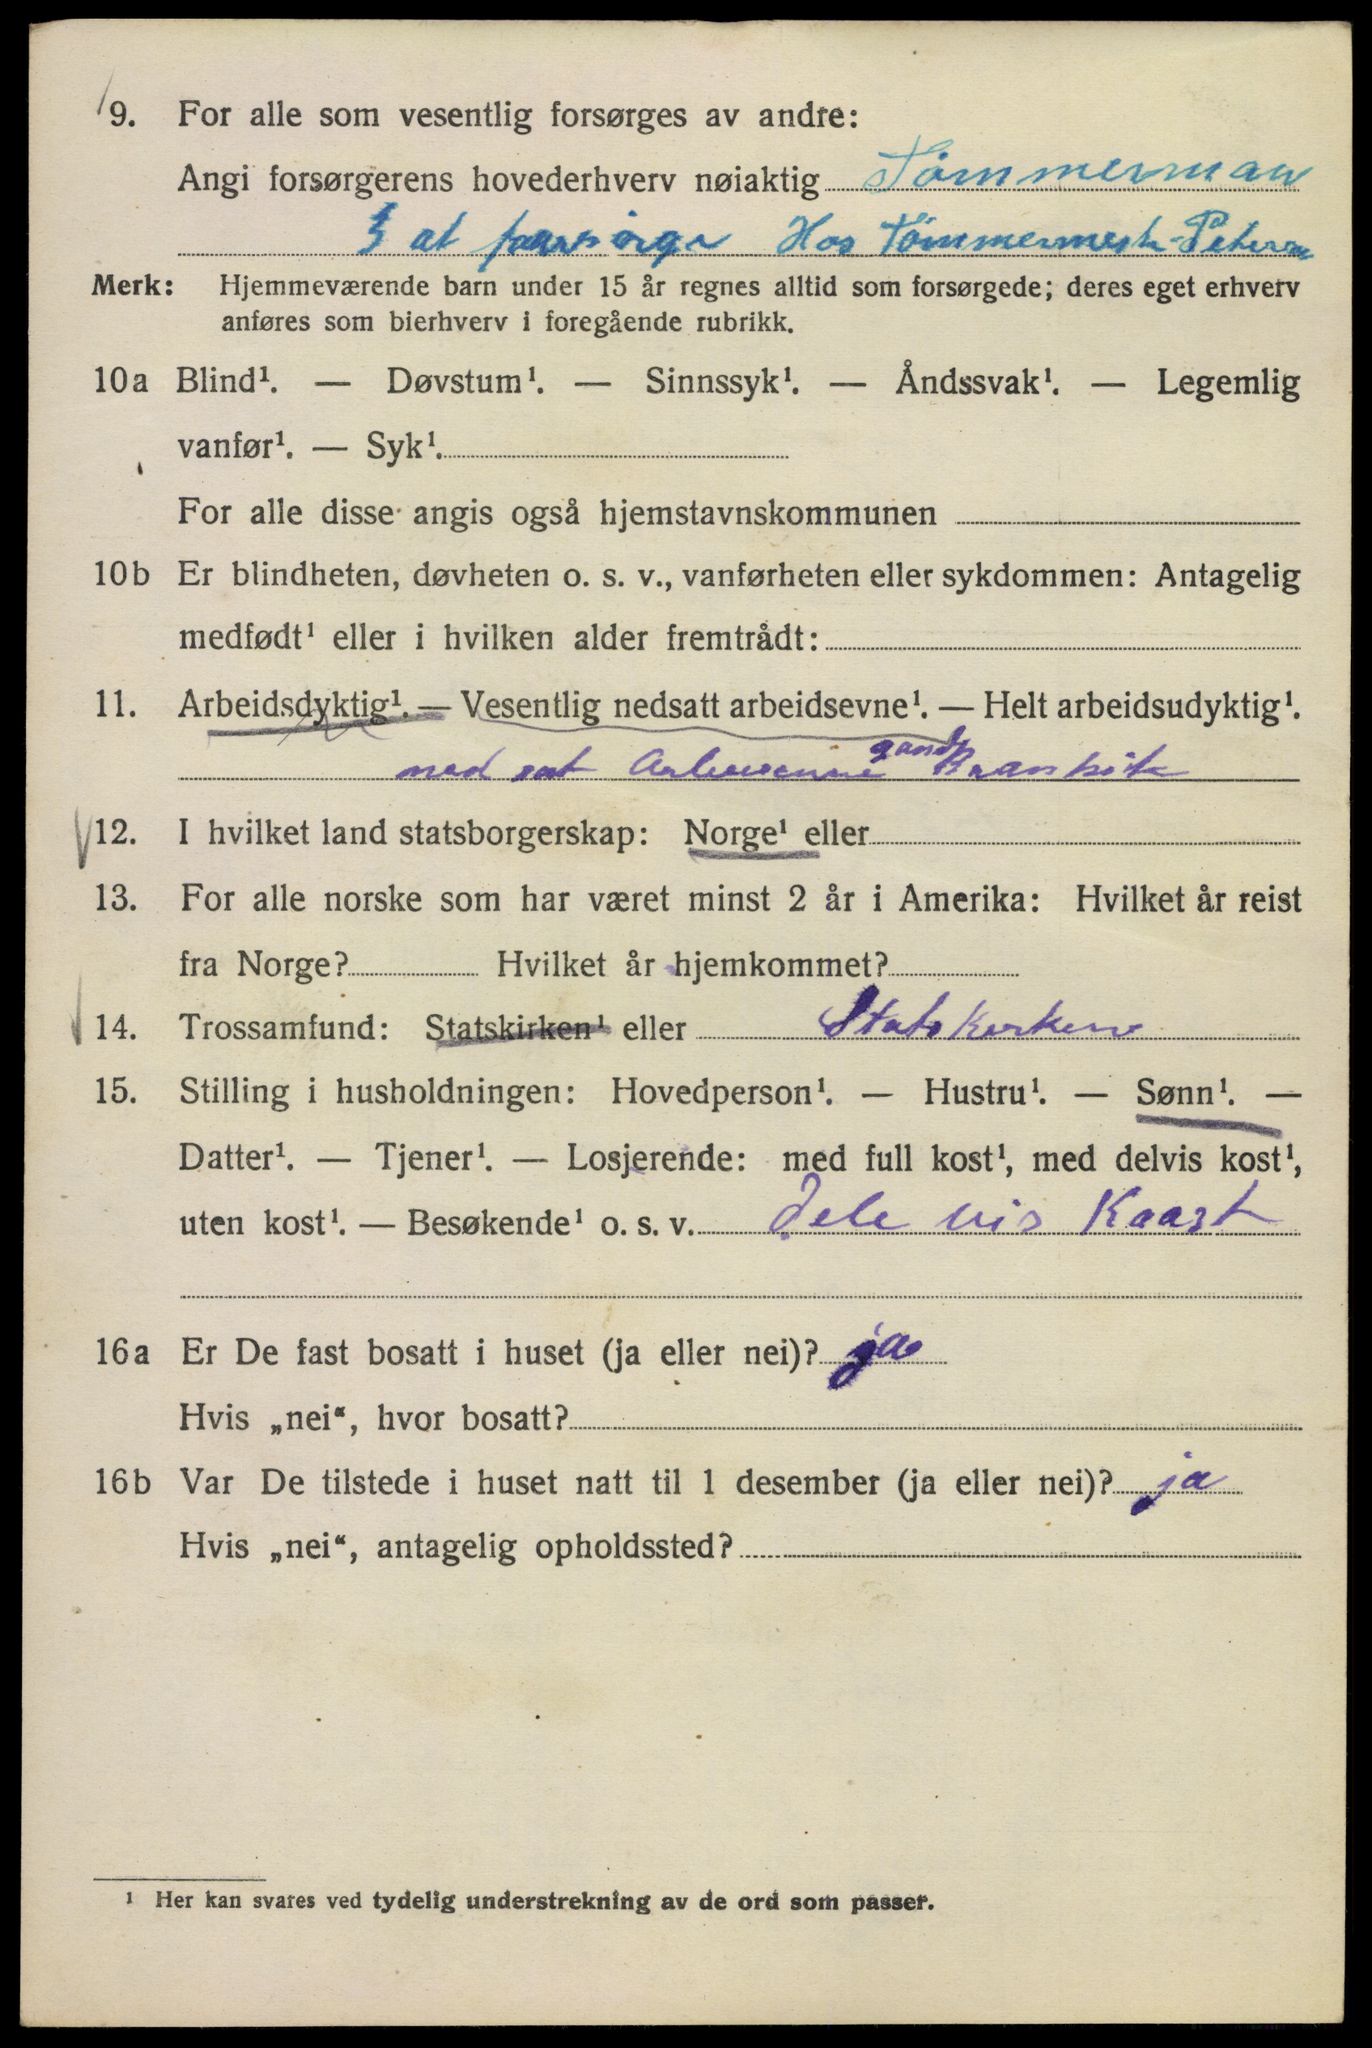 9. For alle som vesentlig forsørges av andre:
Angi forsørgerens hovederhverv nøiaktig Tømmerman
at Hos Tømmermest
Merk: Hjemmeværende barn under 15 år regnes alltid som forsørgede; deres eget erhverv
anføres som bierhverv i foregående rubrikk.
10a Blind¹. — Døvstum¹. — Sinnssyk¹. — Åndssvak¹. — Legemlig
vanfør¹. — Syk¹.
For alle disse angis også hjemstavnskommunen
10b Er blindheten, døvheten o. s. v., vanførheten eller sykdommen: Antagelig
medfødt¹ eller i hvilken alder fremtrådt:
11. Arbeidsdyktig¹. — Vesentlig nedsatt arbeidsevne¹. — Helt arbeidsudyktig¹.
ned sat
12. I hvilket land statsborgerskap: Norge¹ eller
13. For alle norske som har været minst 2 år i Amerika: Hvilket år reist
fra Norge? Hvilket år hjemkommet?
14. Trossamfund: Statskirken¹ eller Statskerken
15. Stilling i husholdningen: Hovedperson¹. — Hustru¹. — Sønn¹. —
Datter¹. — Tjener¹. — Losjerende: med full kost¹, med delvis kost¹,
uten kost¹. — Besøkende¹ o. s. v. Dele vis Kaast
16a Er De fast bosatt i huset (ja eller nei)? ja
Hvis „nei“, hvor bosatt?
16b Var De tilstede i huset natt til 1 desember (ja eller nei)? ja
Hvis „nei“, antagelig opholdssted?
¹ Her kan svares ved tydelig understrekning av de ord som passer.